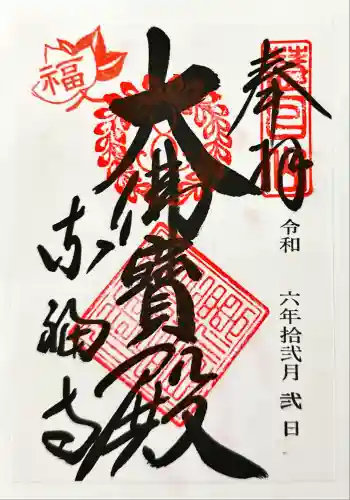 奉拝
令和 六年拾弐月 弐日
大佛寳殿
東福寺
福